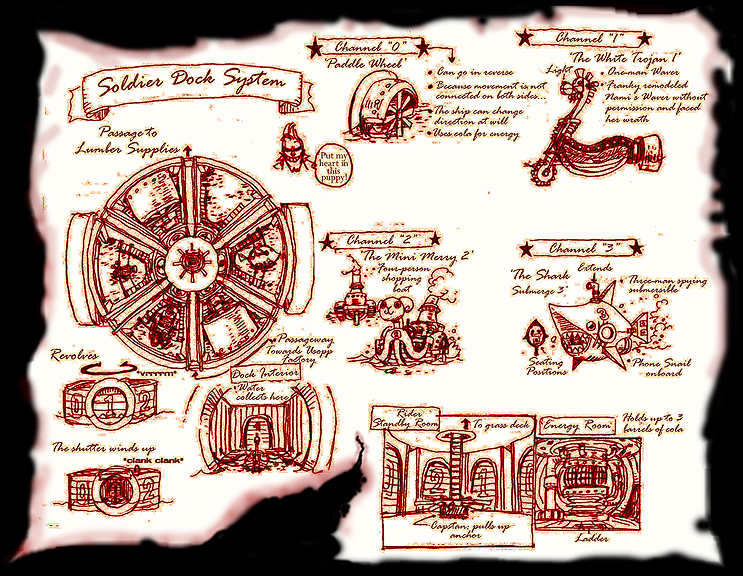 Soldier Dock System
Passage to
Lumber Supplies
Channel "0"
'Paddle Wheel'
• Can go in reverse
• Because movement is not
connected on both sides...
• The ship can change
direction at will
• Uses cola for energy
Put my
heart in
this
puppy!
Channel "1"
'The White Trojan 1'
Light
• One-man Waver
• Franky remodeled
Nami's Waver without
permission and faced
her wrath
Channel "2"
'The Mini Merry 2'
• Four-person
shopping
boat
Channel "3"
'The Shark
Submerge 3'
Extends
• Three-man spying
submersible
Seating
Positions
Phone Snail
onboard
• Passageway
Towards Usopp
Factory
Revolves
1
2
The shutter winds up
*clank clank*
2
Dock Interior
• Water
collects here
Rider
Standby Room
To grass deck
Capstan; pulls up
anchor
'Energy Room'
Holds up to 3
barrels of cola
Ladder